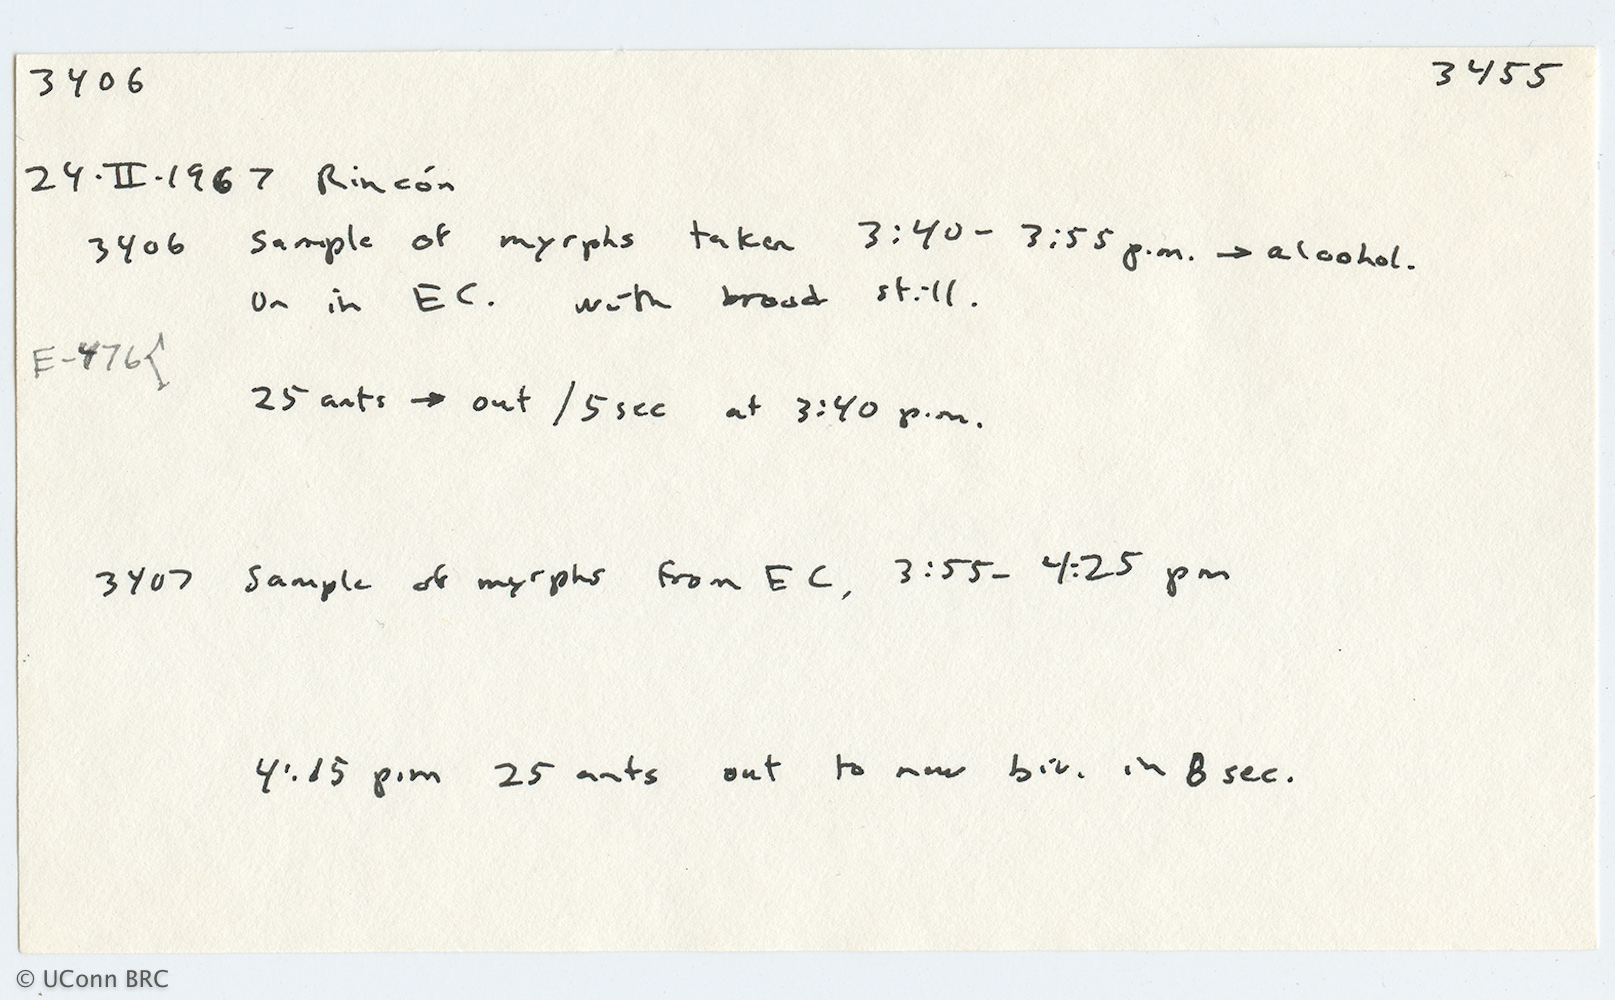 3406 3455
24·II·1967 Rincón
3406 Sample of myrphs taken 3:40 - 3:55 p.m. → alcohol.
in EC. with brood still.
E-476{
25 ants → out /5 sec at 3:40 p.m.
3407 Sample of myrphs from EC, 3:55 - 4:25 pm
4:15 p.m 25 ants out to new biv. in 8 sec.
© UConn BRC